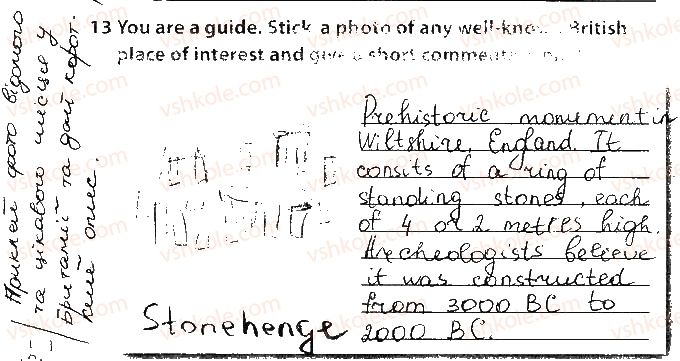 13 You are a guide. Stick a photo of any well-know British
place of interest and give a short comment
Приклей фото відомого
та цікавого місця у
Британії та дай корот-
кий опис.
Prehistoric monument in
Wiltshire, England. It
consits of a ring of
standing stones, each
of 4 or 2 metres high.
Archeologists believe
it was constructed
from 3000 BC to
2000 BC.
Stonehenge